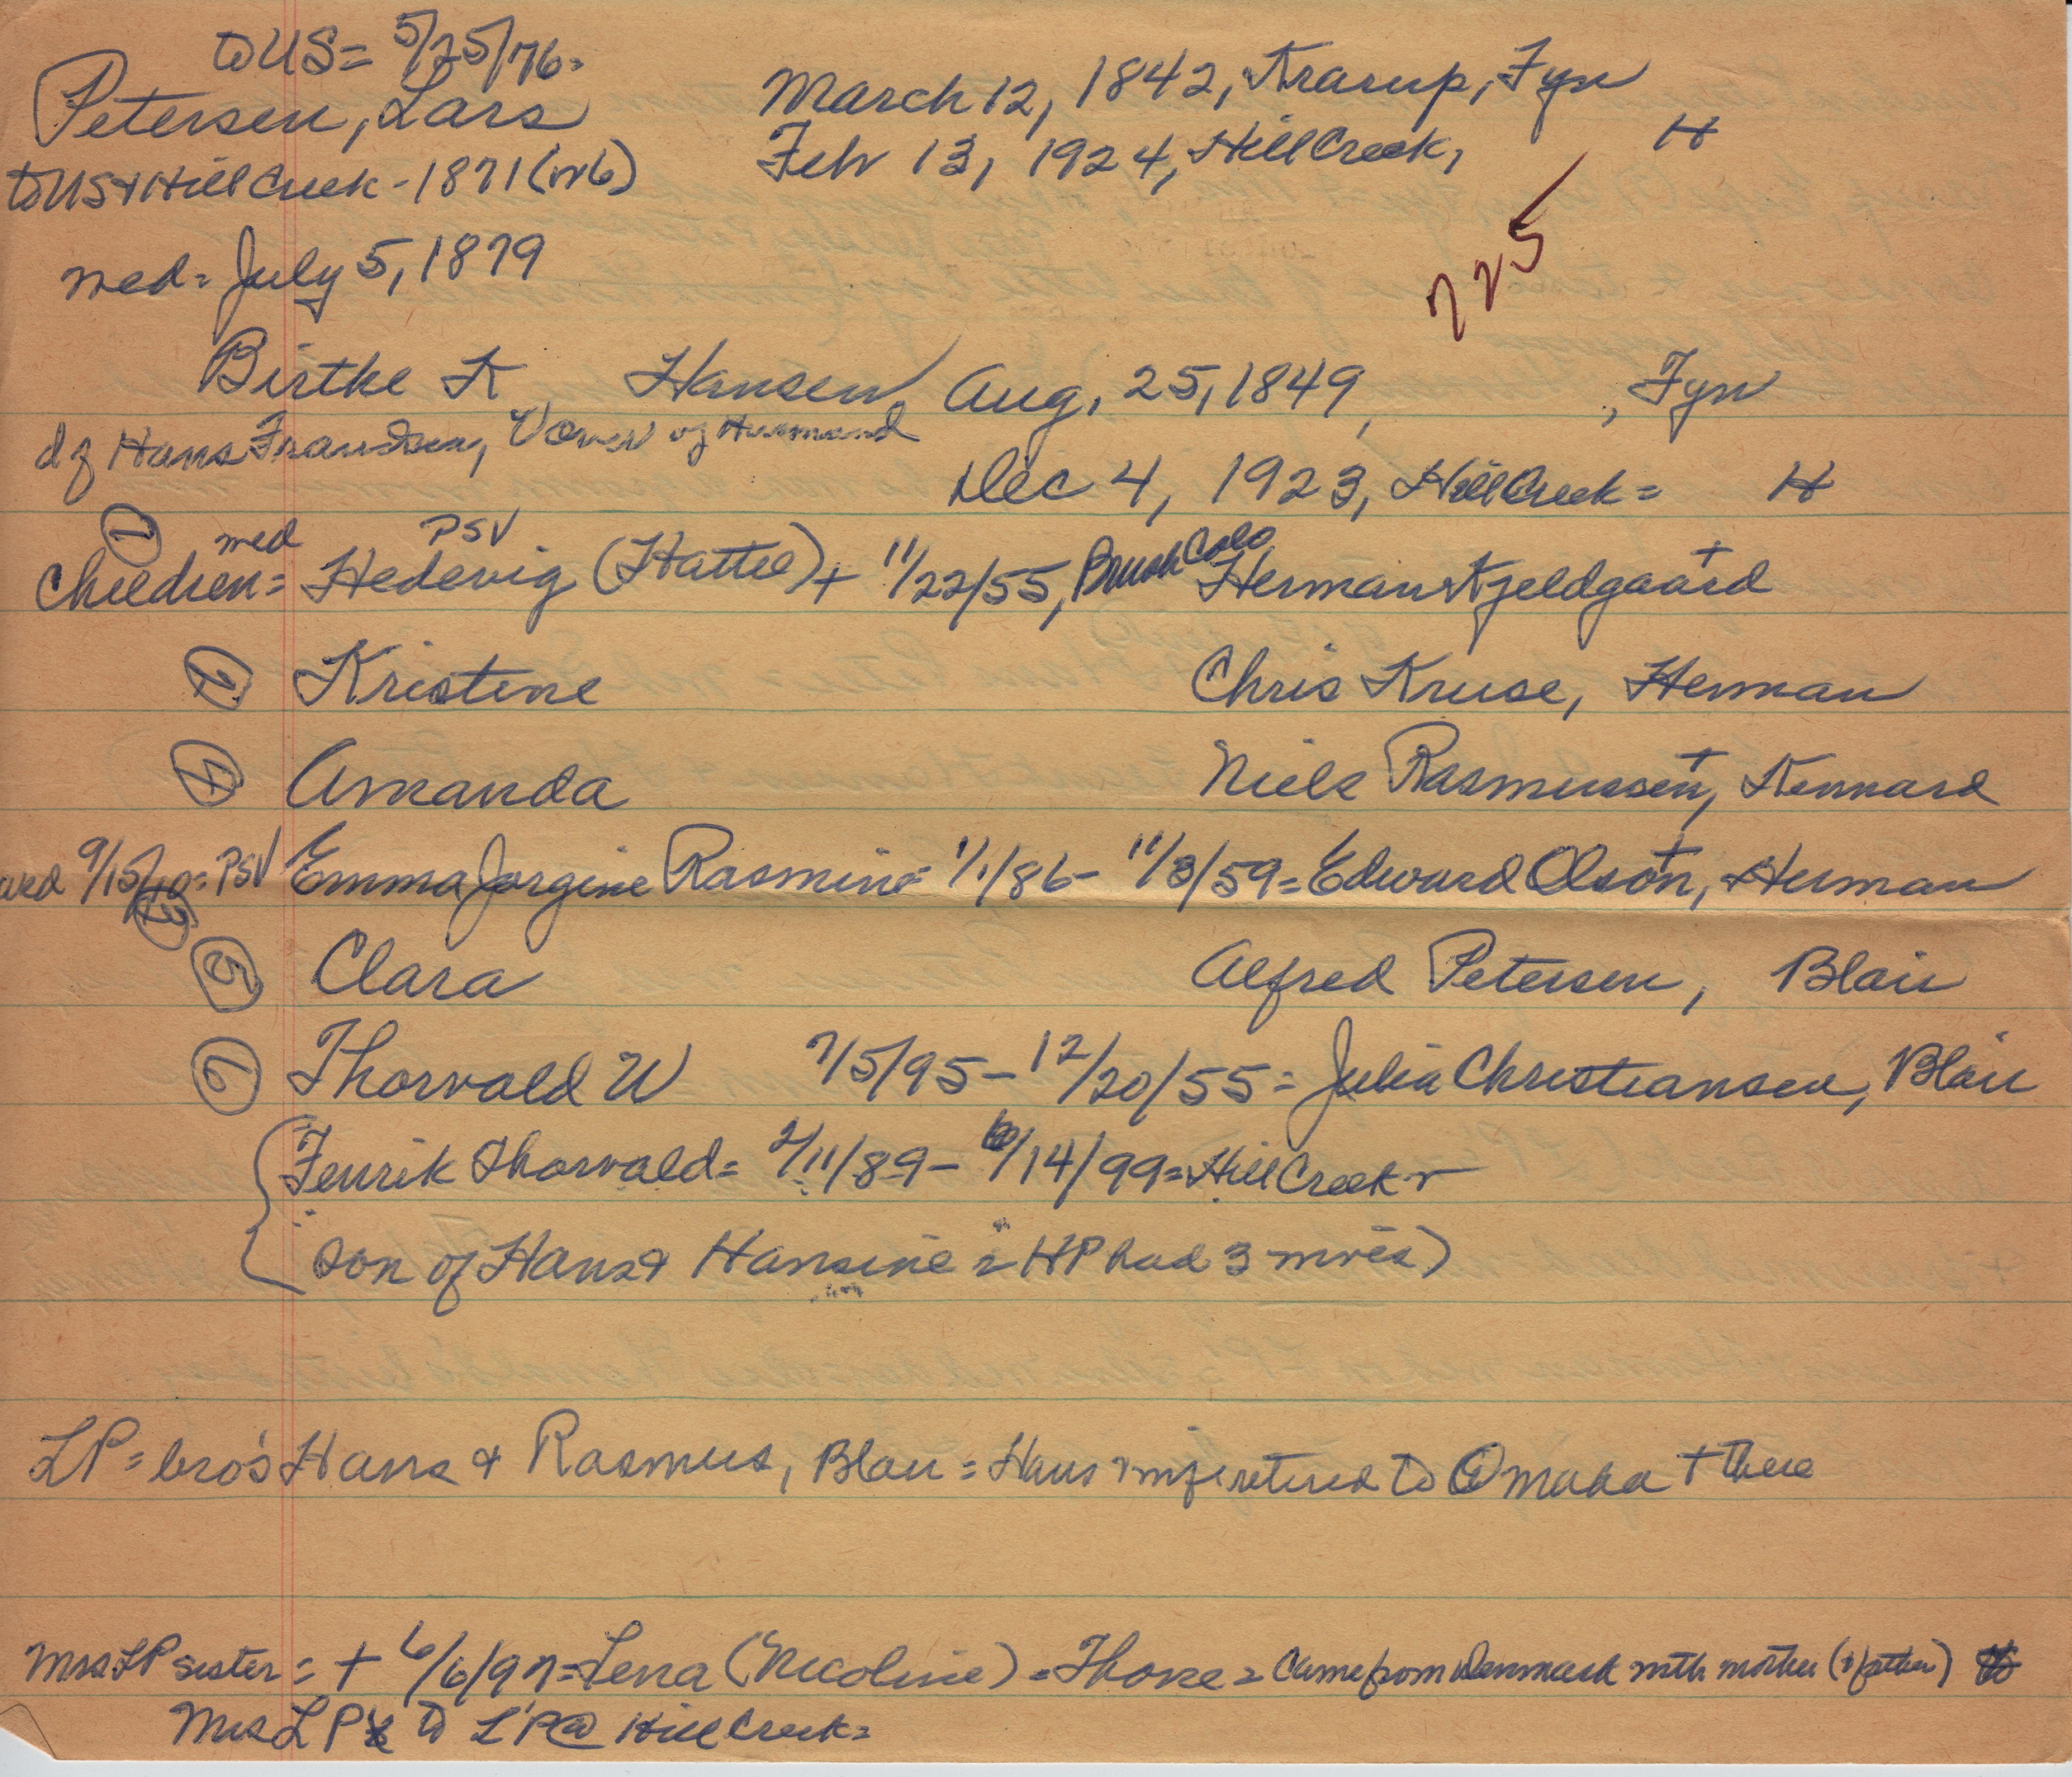 to US = 5/25/76.
Petersen, Lars March 12, 1842, Krarup, Fyn
to US & Hill Creek - 1871 (or 6) Feb 13, 1924, Hill Creek, H
725
med = July 5, 1879
Birthe K Hansen, Aug, 25, 1849, , Fyn
d of Hans Frandsen, of Husmand
Dec 4, 1923, Hill Creek = H
① med PSV
Children = Hedevig (Hattie) + 11/22/55, Brush Colo Herman Kjeldgaard +
② Kristine Chris Kruse, Herman
④ Amanda Niels Rasmussen +, Kennard
wed 9/15/10 = PSV Emma Jorgine Rasmine = 1/1/86 - 11/3/59 = Edward Olson +, Herman
③
⑤ Clara Alfred Petersen, Blair
⑥ Thorvald W 7/5/95 - 12/20/55 = Julia Christiansen, Blair
{ Fenrik Thorvald = 2/11/89 - 6/14/99 = Hill Creek
son of Hans & Hansine = HP had 3 )
LP = bro's Hans & Rasmus, Blair = Hans & wife retired to Omaha + there
Mrs LP sister = + 6/6/97 = Lena (Nicoline) = Thone = Came from Denmark with mother (& father)
Mrs LP to LP @ Hill Creek =